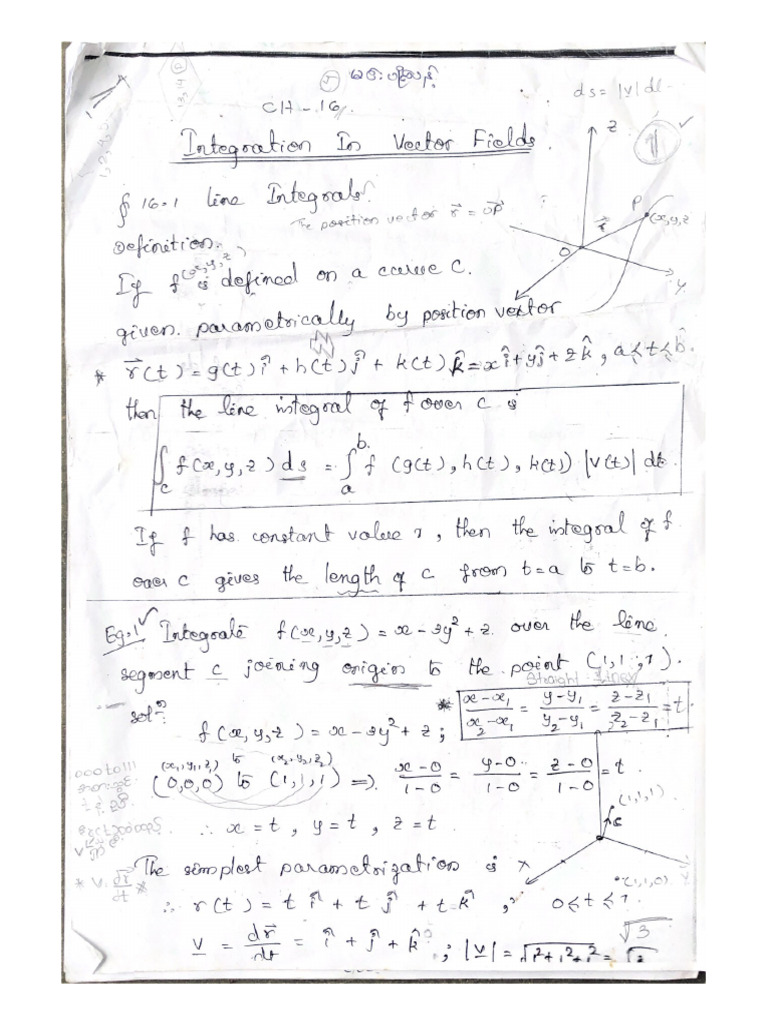 ds = |v| dt
CH - 16
Integration In Vector Fields.
1
§ 16.1 line Integrals.
The position vector r⃗ = OP⃗
Definition:
(x,y,z)
If f is defined on a curve C.
given parametrically by position vector
* r⃗(t) = g(t) î + h(t) ĵ + k(t) k̂ = x î + y ĵ + z k̂, a ≤ t ≤ b.
then the line integral of f over C is
∫_C f(x,y,z) ds = ∫_a^b f (g(t), h(t), k(t)) |v(t)| dt.
If f has constant value 1, then the integral of f
over C gives the length of C from t=a to t=b.
Eg:1 Integrate f(x,y,z) = x - 3y² + z over the line
segment C joining origin to the point (1,1,1).
Straight lines
solⁿ:
* (x-x₁)/(x₂-x₁) = (y-y₁)/(y₂-y₁) = (z-z₁)/(z₂-z₁) = t
f(x,y,z) = x - 3y² + z ;
(x₁,y₁,z₁) to (x₂,y₂,z₂)
(0,0,0) to (1,1,1) ⇒ (x-0)/(1-0) = (y-0)/(1-0) = (z-0)/(1-0) = t
∴ x = t, y = t, z = t
The simplest parametrization is
∴ r(t) = t î + t ĵ + t k̂, 0 ≤ t ≤ 1
v = dr⃗/dt = î + ĵ + k̂ ; |v| = √(1²+1²+1²) = √3
√3
z
P
(x,y,z
r⃗
O
y
(1,1,1)
C
(1,1,0)
x
* v = dr⃗/dt *